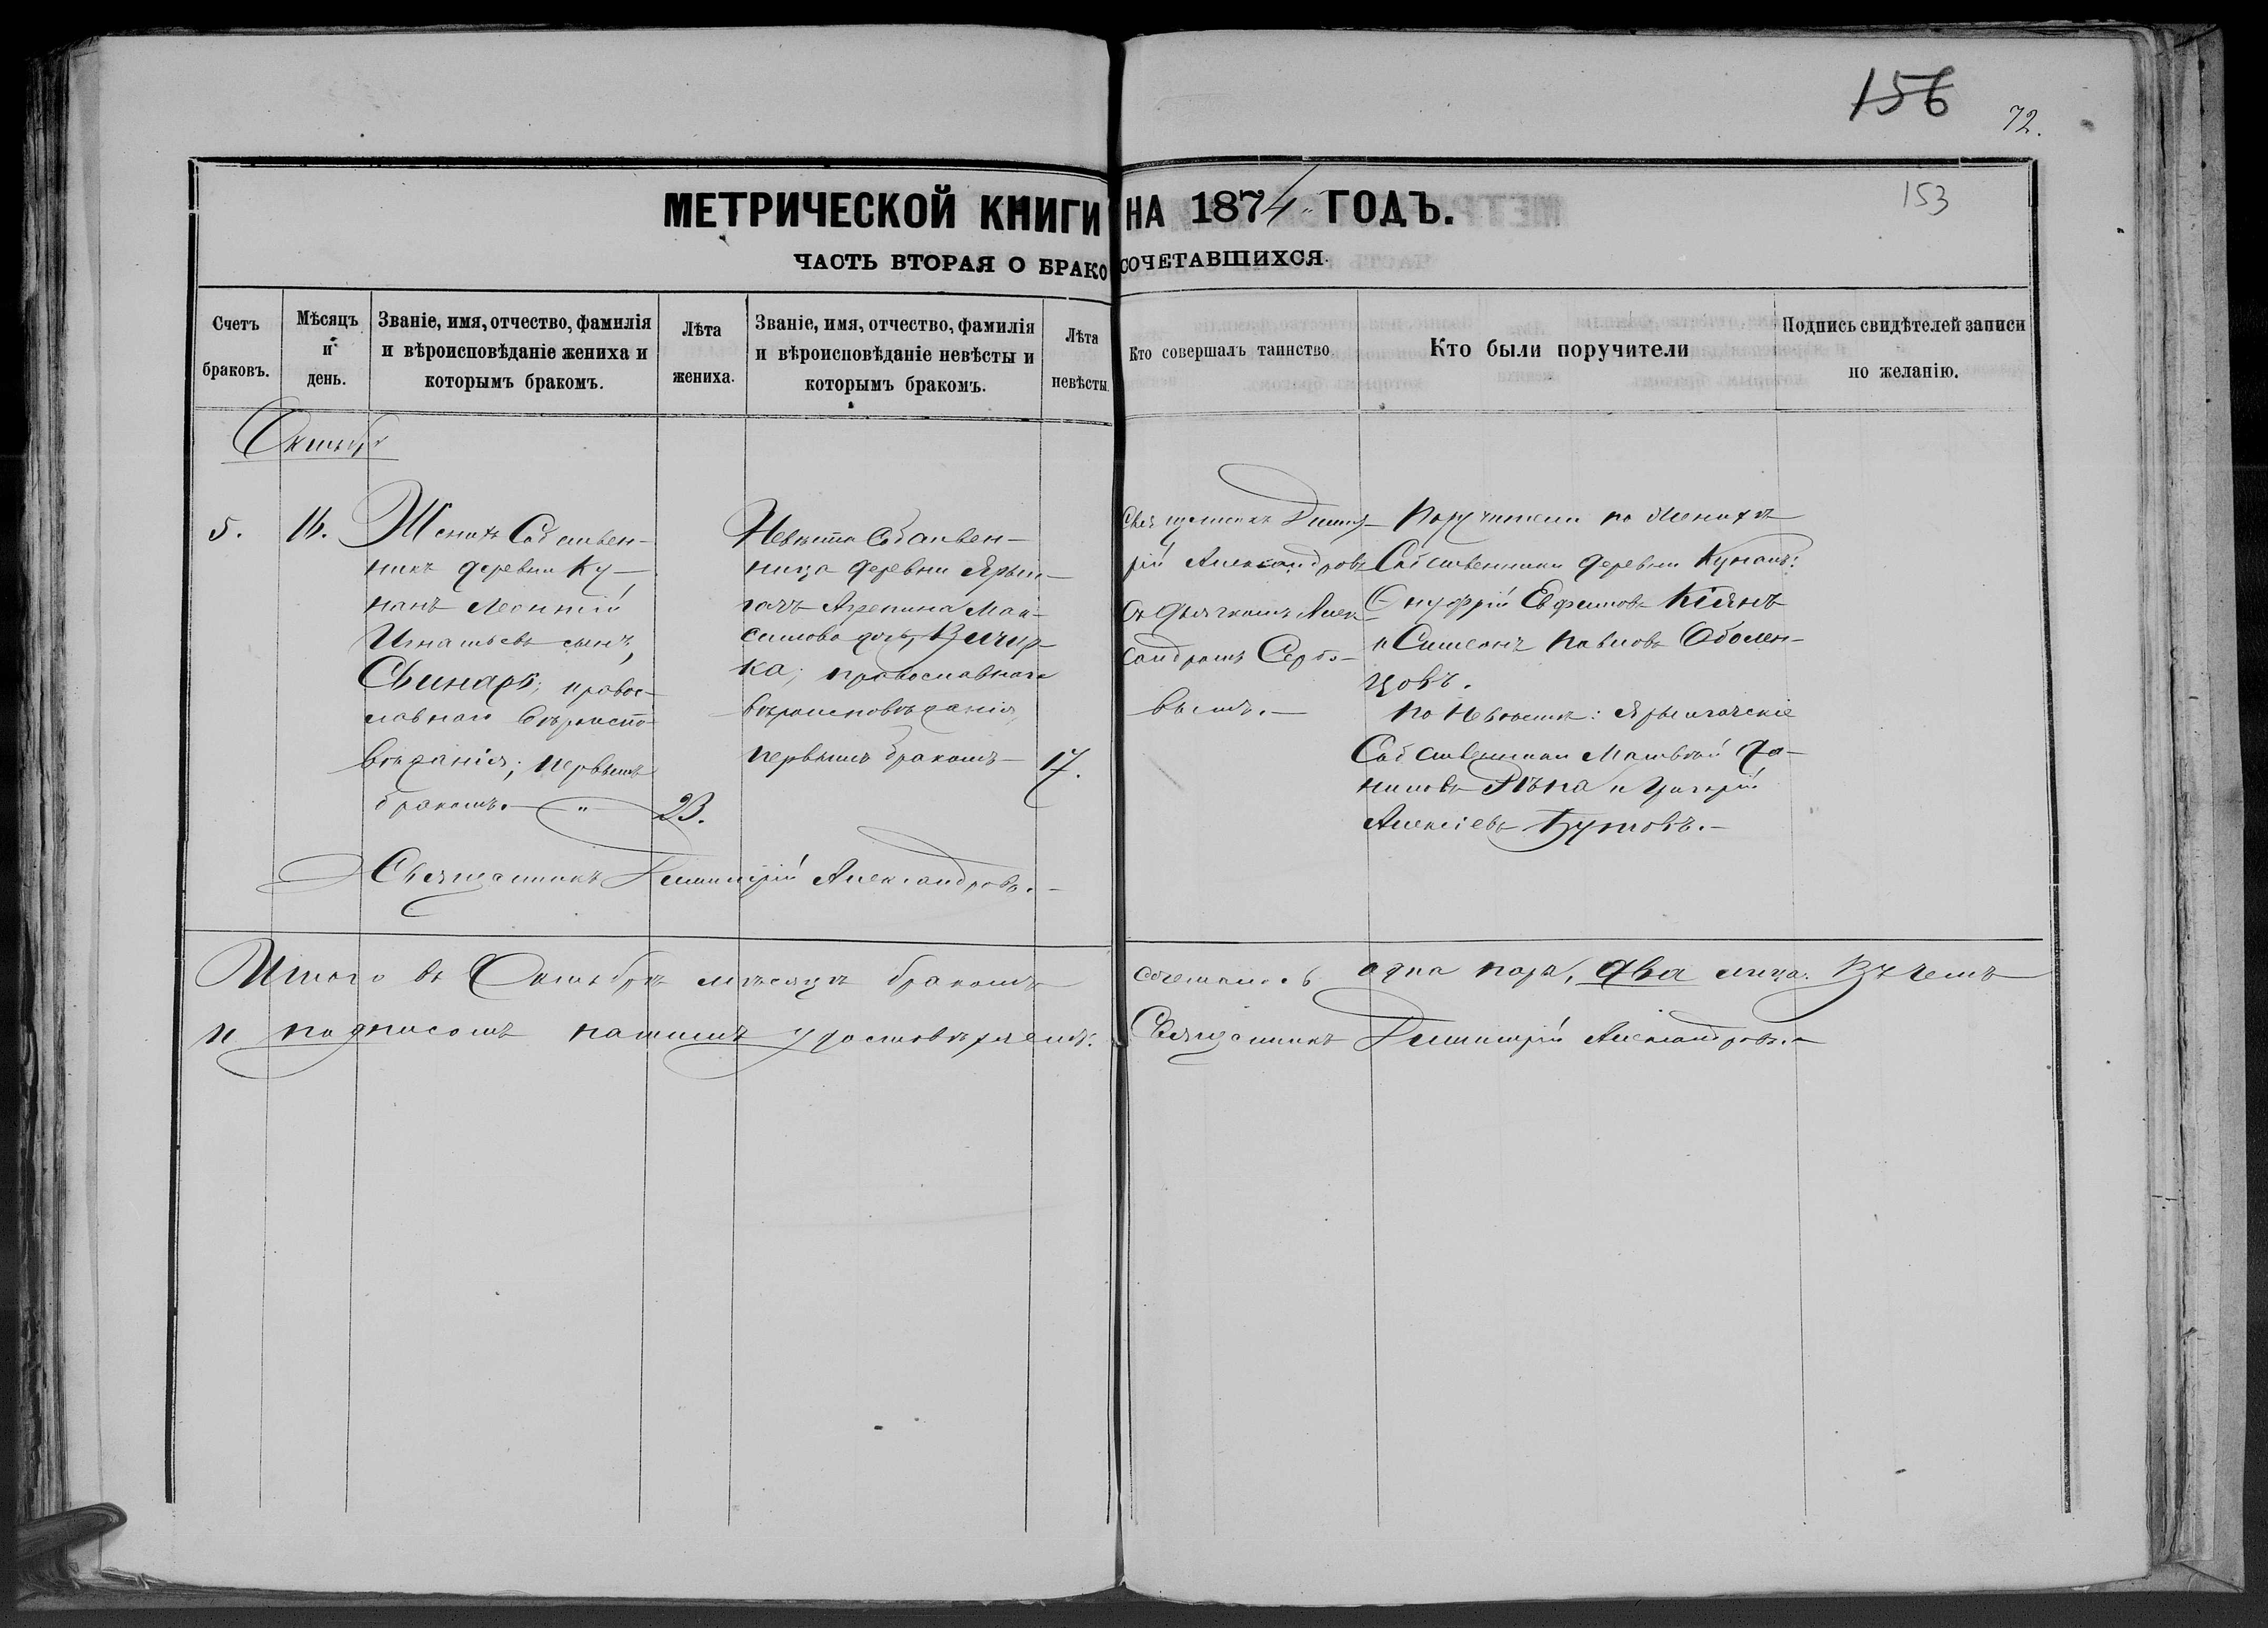 156
72.
153
МЕТРИЧЕСКОЙ КНИГИ НА 1874 ГОДЪ.
ЧАСТЬ ВТОРАЯ О БРАКОСОЧЕТАВШИХСЯ.
Счетъ браковъ.
Мѣсяцъ и день.
Званіе, имя, отчество, фамилія и вѣроисповѣданіе жениха и которымъ бракомъ.
Лѣта жениха.
Званіе, имя, отчество, фамилія и вѣроисповѣданіе невѣсты и которымъ бракомъ.
Лѣта невѣсты.
Кто совершалъ таинство
Кто были поручители
Подпись свидѣтелей записи по желанію.
Октябр
5.
Женихъ Собствен-
никъ деревни Ку-
нанъ Леонтій
Игнатьевъ сынъ,
Свинарь; правос-
лавнаго вѣроиспо-
вѣданія; первымъ
бракомъ. — „ —
23.
Невѣста Собствен-
ница деревни Ярыл-
гачъ Агрепина Мак-
симова дочь,
ка; православнаго
вѣроисповѣданія
первымъ бракомъ —
17.
Священникъ Димит-
рій Александровъ
съ дьячкомъ Алек-
сандромъ Серб-
вымъ. —
Поручители по Женихѣ
Собственники деревни Кунанъ:
Онуфрій Евфимовъ Кіянъ
и Симеонъ Павловъ Оболен-
цовъ.
По Невѣстѣ: Ярылгачскіе
Собственники Матвѣй Да-
ниловъ Рѣпа и Григорій
Алексіевъ Бутовъ. —
Священникъ Димитрій Александровъ. —
Итого въ Октябрѣ мѣсяцѣ бракомъ сочеталось одна пара, два лица. Въ чемъ
и подписомъ нашимъ удостовѣряемъ. Священникъ Димитрій Александровъ. —